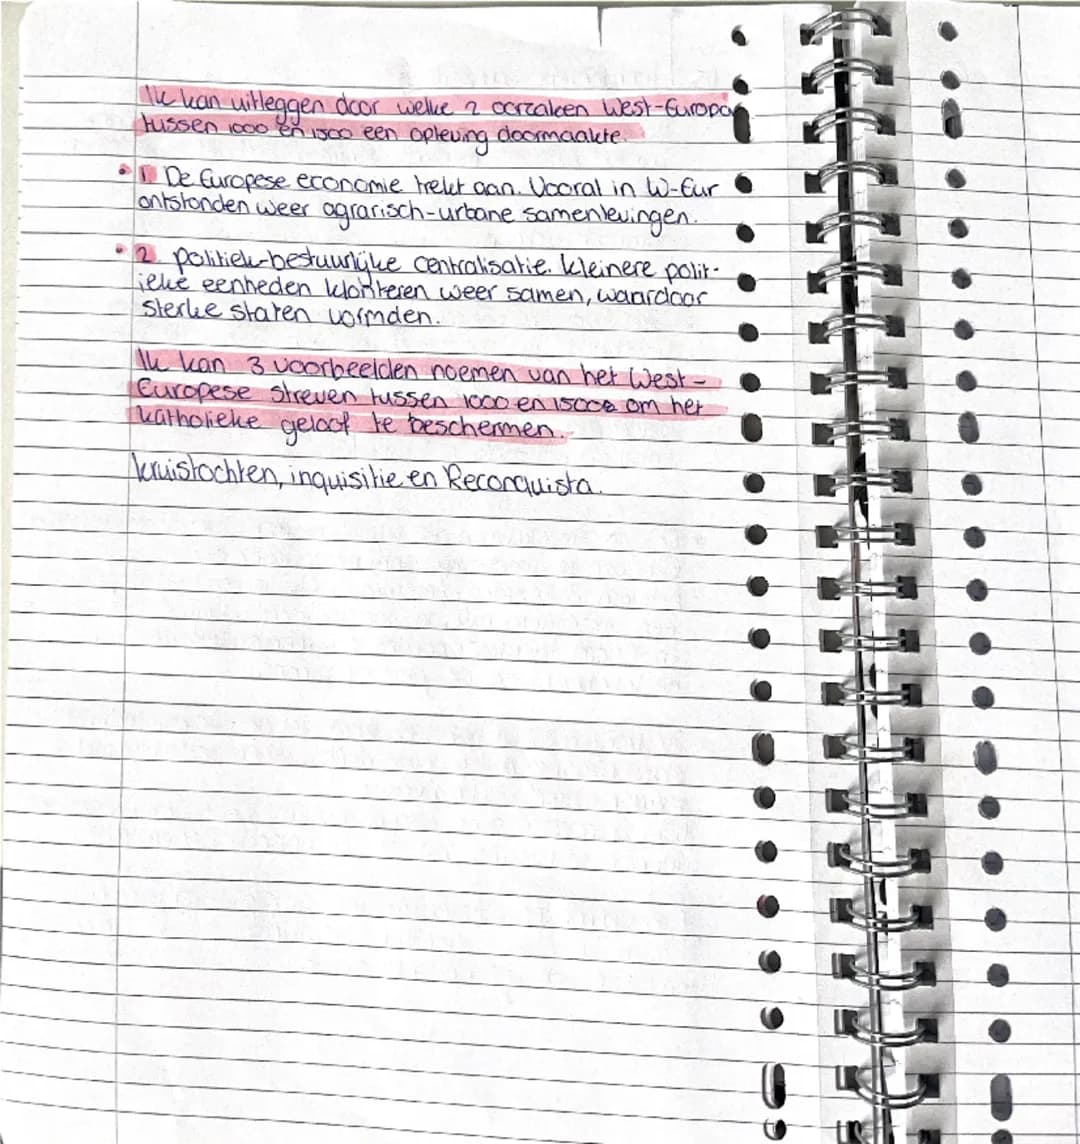 Ik kan uitleggen door welke 2 oorzaken West-Europa
tussen 1000 en 1500 een opleving doormaakte.
• 1. De Europese economie trekt aan. Vooral in W-Eur
ontstonden weer agrarisch-urbane samenlevingen.
• 2. politiek-bestuurlijke centralisatie. kleinere polit-
ieke eenheden klonteren weer samen, waardoor
sterke staten vormden.
Ik kan 3 voorbeelden noemen van het West-
Europese streven tussen 1000 en 1500 om het
katholieke geloof te beschermen.
kruistochten, inquisitie en Reconquista.